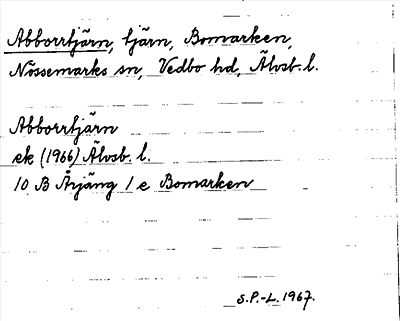 Abborrtjärn, tjärn, Bomarken,
Nössemarks sn, Vedbo hd, Älvsb. l.
Abborrtjärn
ek (1966) Älvsb. l.
10 B Årjäng 1 e Bomarken
S.P.-L. 1967.